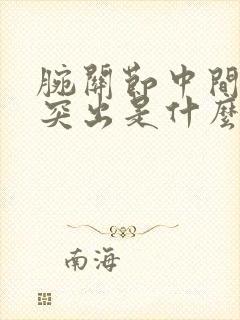 腕關節中間
突出是什麼
南海